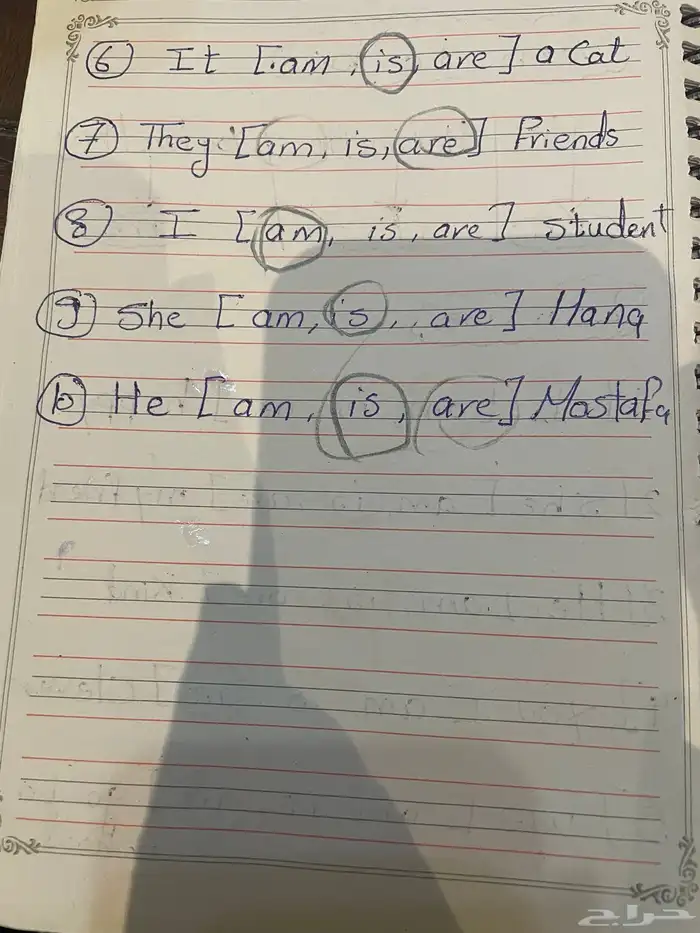 6 It [am, is, are] a Cat
7 They [am, is, are] Friends
8 I [am, is, are] student
9 She [am, is, are] Hana
10 He [am, is, are] Mostafa
حراج